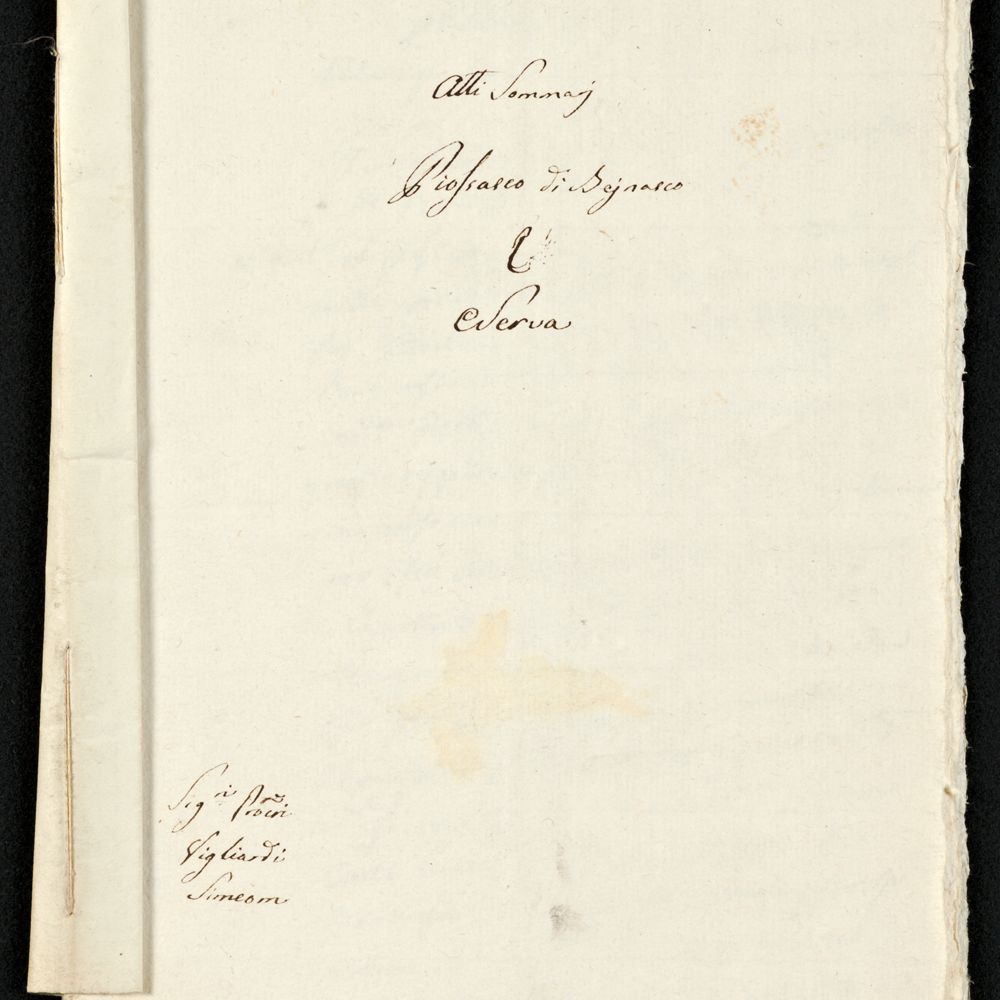 Atti Sommarj
Piossasco di Bejnasco
C
Serva
Sig.ri Procri
Vigliardi
Simeom